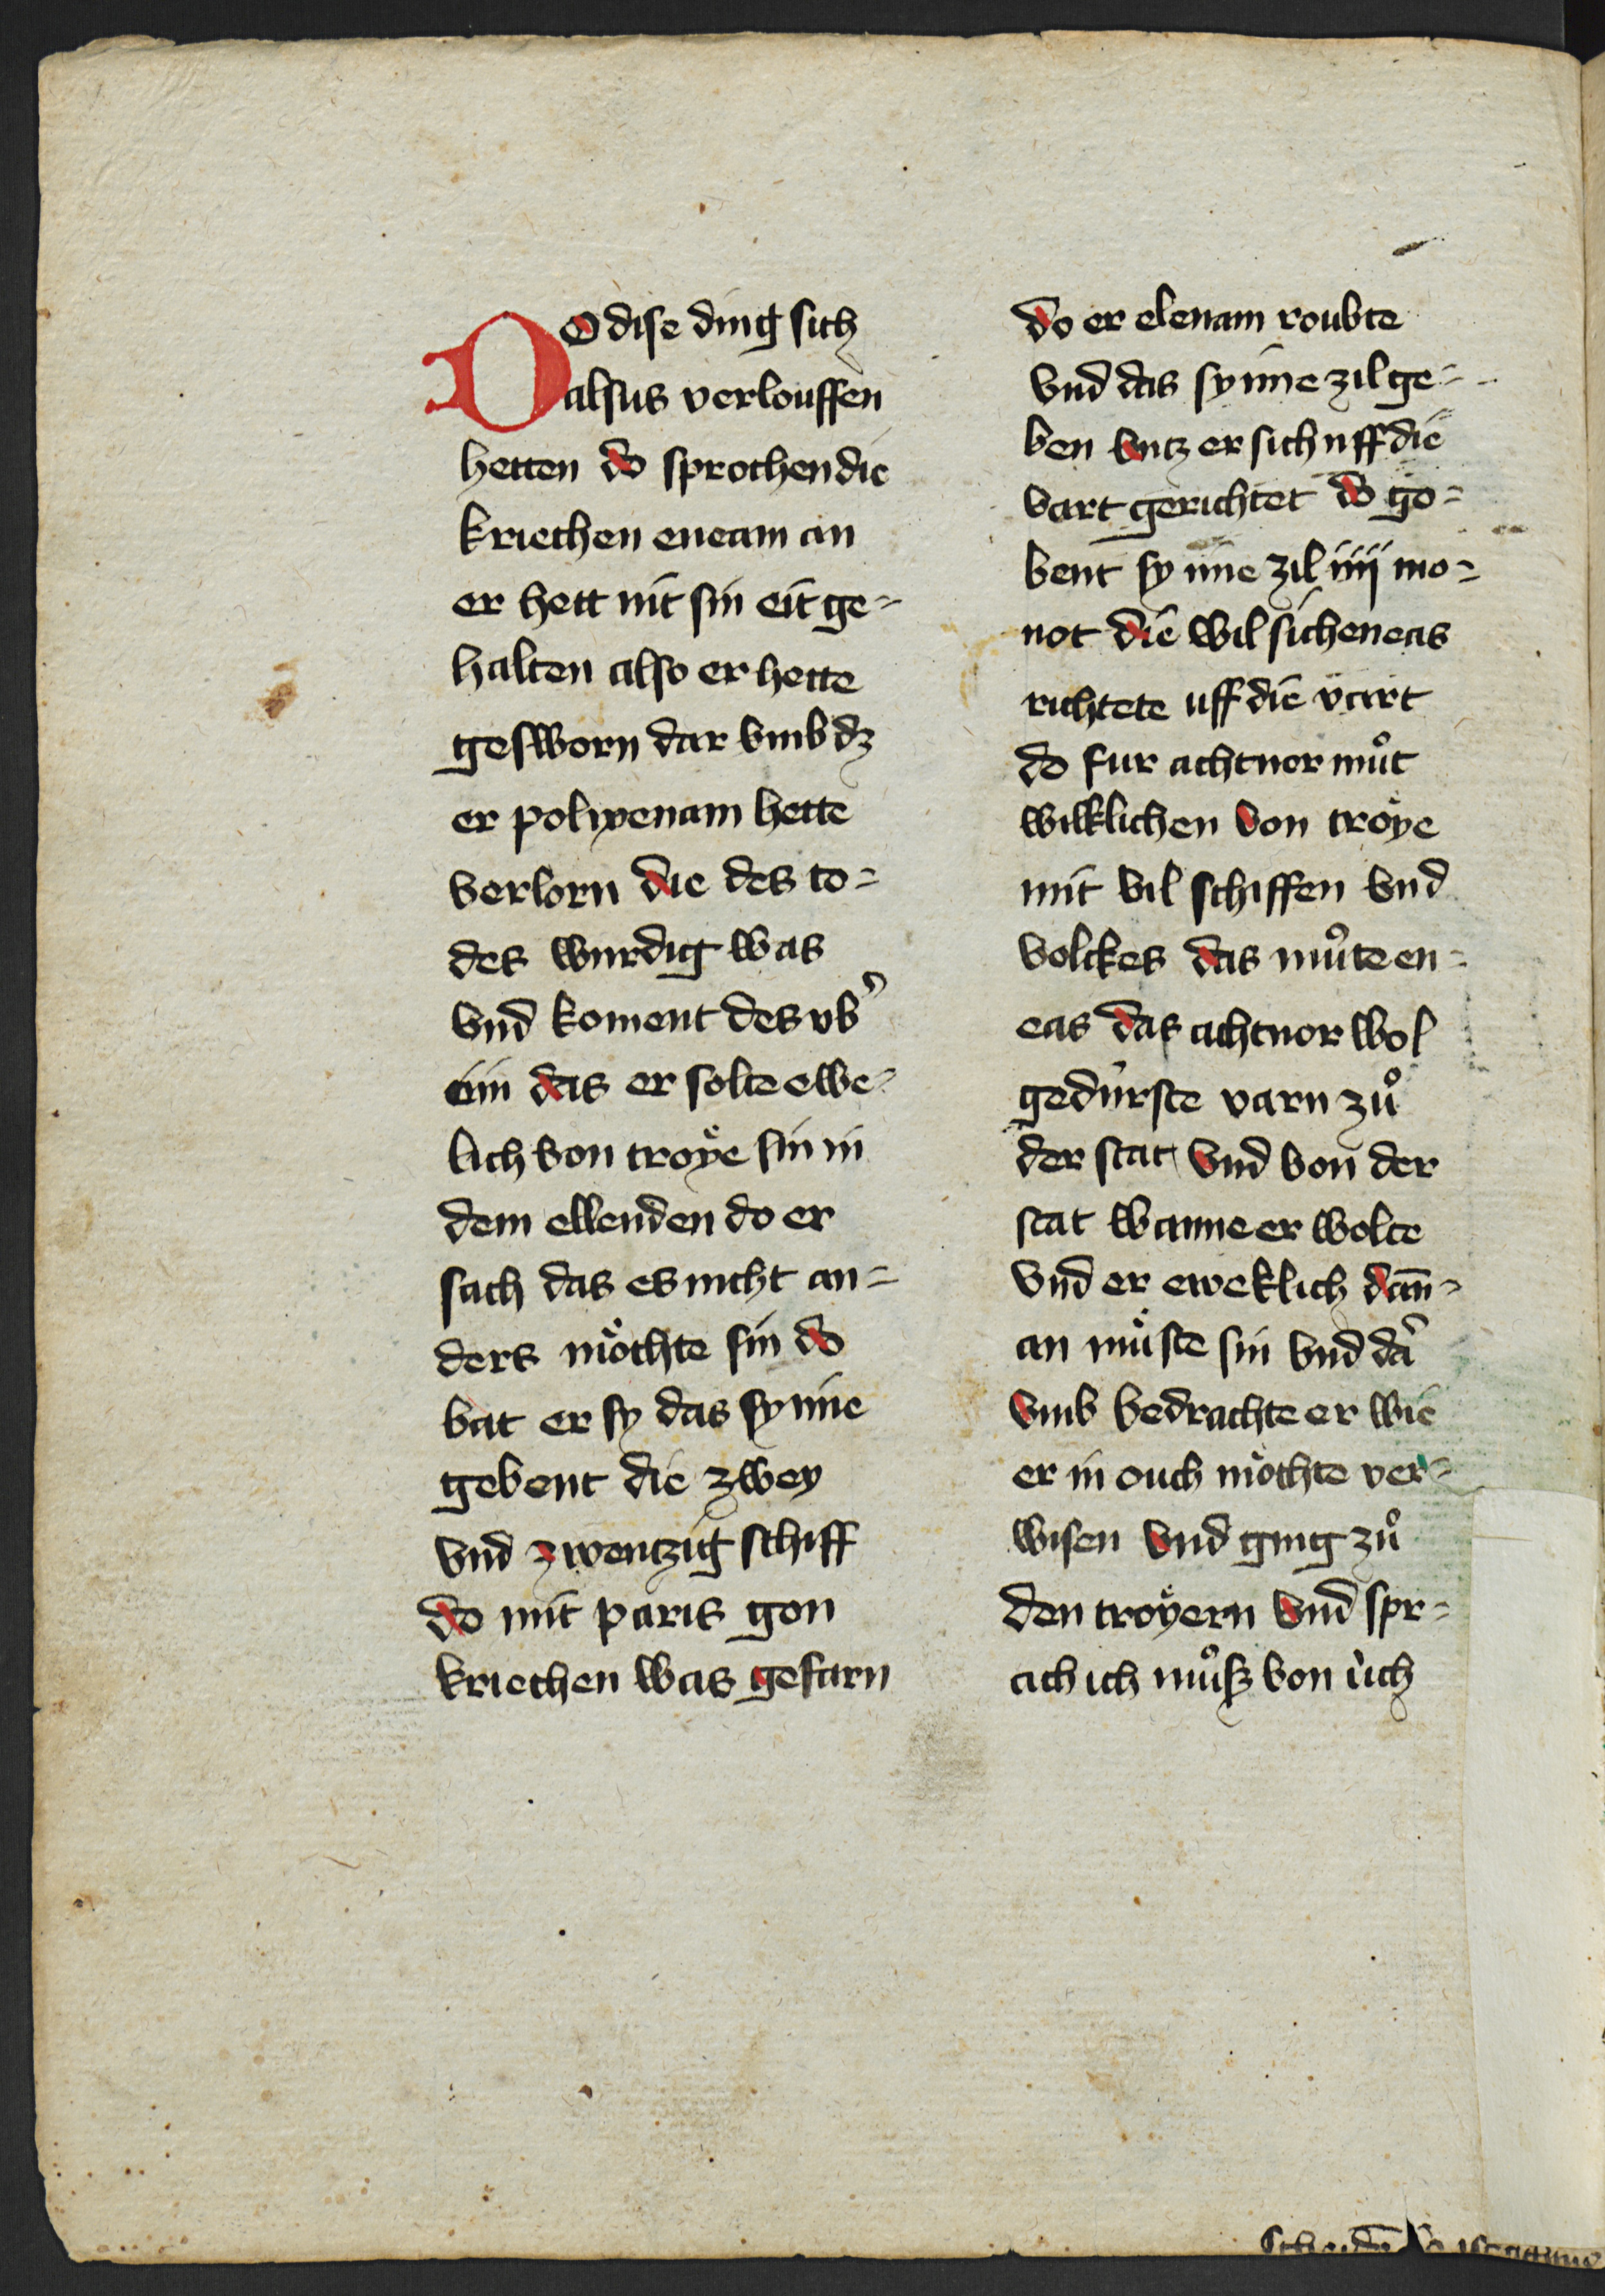 DO dise ding sich
alsus verlouffen
hetten do sprochen die
kriechen eneam an
er hett nit sin eit ge-
halten also er hette
gesworn dar vmb dz
er polixenam hette
verlorn die des to-
des wurdig was
vnd koment des vb'
ein das er solte ewe-
lich von troÿe sin in
dem ellenden do er
sach das es nicht an-
ders möchte sin do
bat er sy das sy ime
gebent die zwey
vnd zwentzig schiff
do mit paris gon
kriechen was gefarn
do er elenam roubte
vnd das sy ime zil ge-
ben vntz er sich uff die
vart gerichtet do go-
bent sy ime zil iiij mo-
not die wil sich eneas
richtete uff die vart
do fur achtnor mů̊t
wilklichen von troÿe
mit vil schiffen vnd
volckes das mů̊te en-
eas das achtnor wol
gedürste varn zů
der stat vnd von der
stat wanne er wolte
vnd er eweklich dan̄-
an müste sin vnd da'
vmb bedrachte er wie
er in ouch möchte ver-
wisen vnd ging zů
den troÿern vnd spr-
ach ich můsz von üch